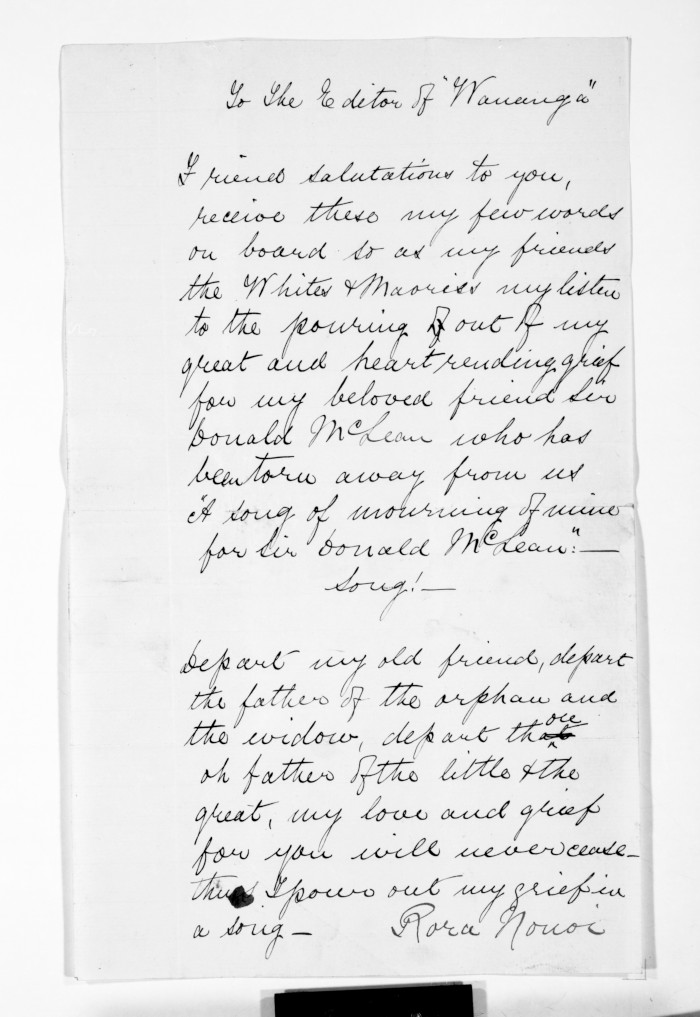 To The Editor of "Wananga"
Friend salutations to you,
receive these my few words
on board so as my friends
the Whites & Maories my listen
to the pouring out of my
great and heart rending grief
for my beloved friend Sir
Donald McLean who has
been torn away from us
"A song of mourning of mine
for Sir Donald McLean":—
Song!—
Depart my old friend, depart
the father of the orphan and
the widow, depart thou
oh father of the little & the
great, my love and grief
for you will never cease—
thus I pour out my grief in
a song— Rora Nonoi